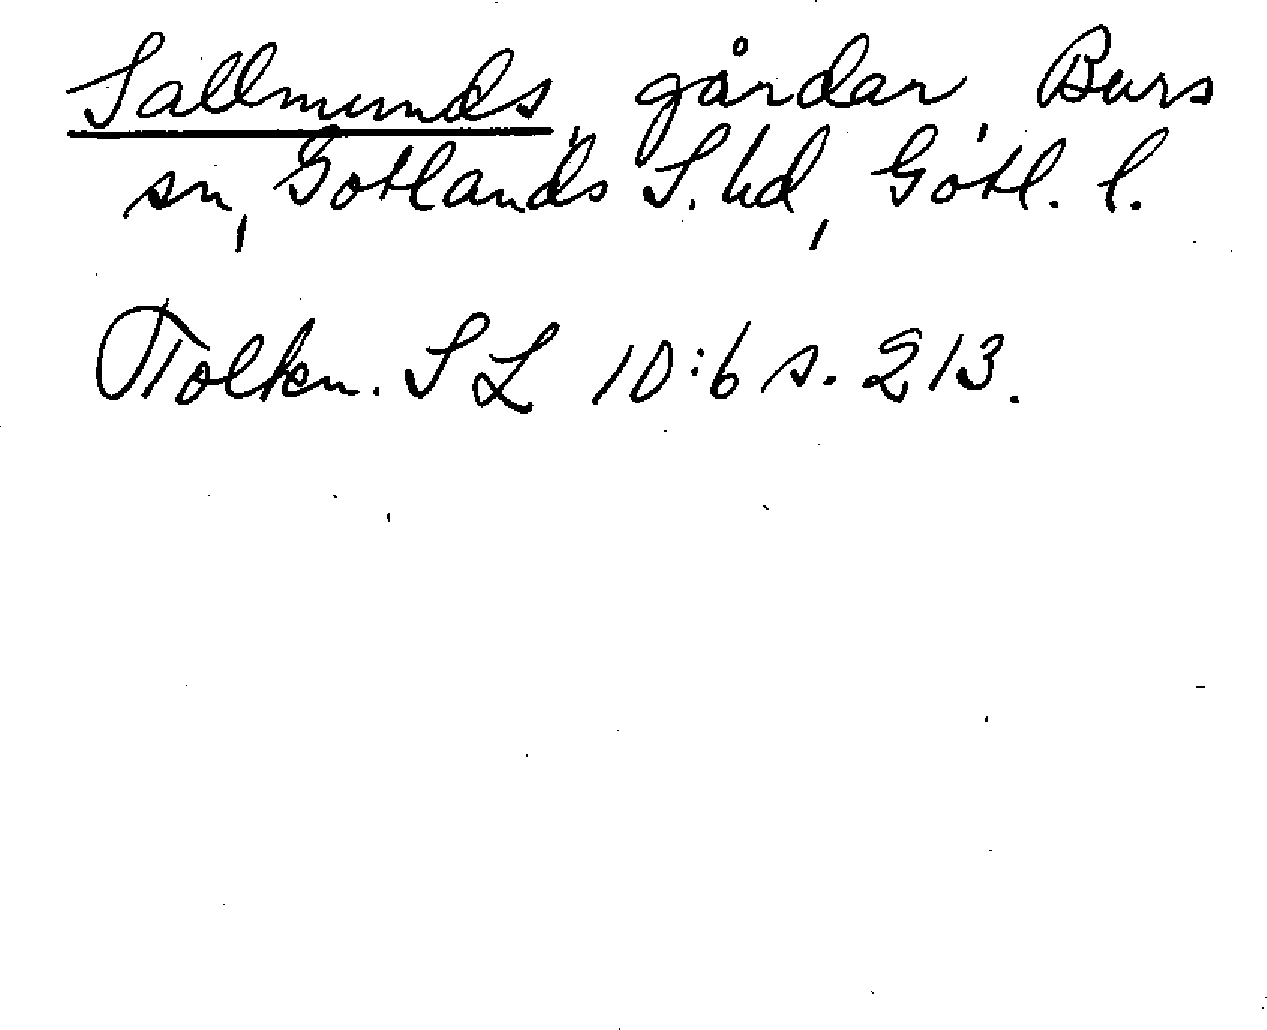 Sallmunds, gårdar, Burs
sn, Gotlands S. hd, Gotl. l.
Tolkn. SL 10:6 s. 213.